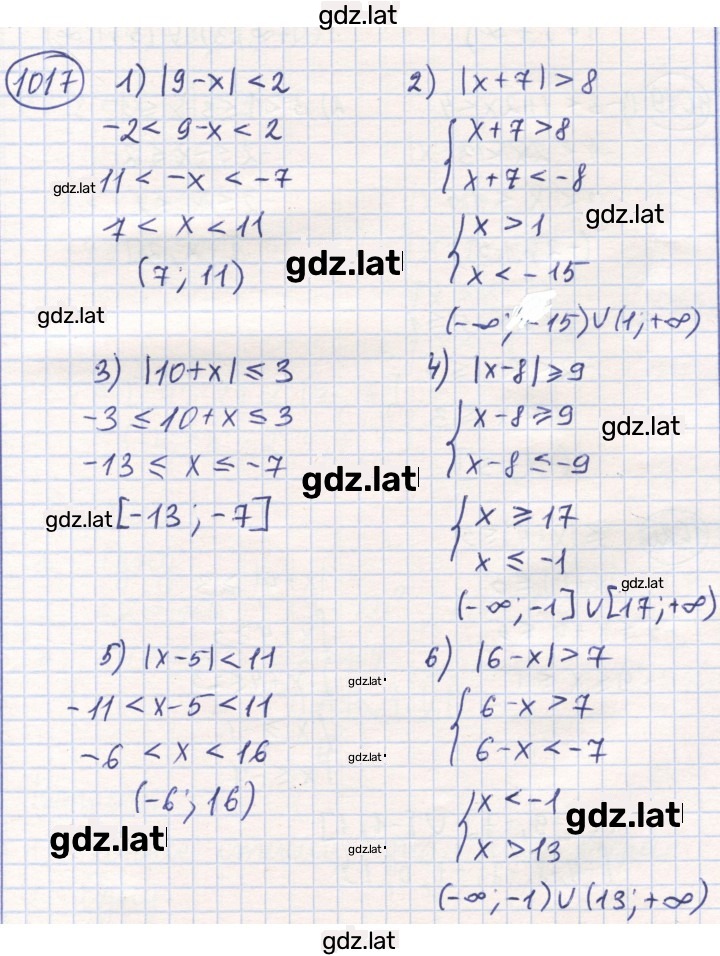 gdz.lat
1017 1) |9-x| < 2
-2 < 9-x < 2
gdz.lat 11 < -x < -7
7 < x < 11
(7; 11)
gdz.lat
gdz.lat
2) |x+7| > 8
{ x+7 > 8
x+7 < -8
gdz.lat
{ x > 1
x < -15
(-∞; -15) ∪ (1; +∞)
3) |10+x| ≤ 3
-3 ≤ 10+x ≤ 3
-13 ≤ x ≤ -7
gdz.lat
gdz.lat [-13; -7]
4) |x-8| ≥ 9
{ x-8 ≥ 9
gdz.lat
x-8 ≤ -9
{ x ≥ 17
x ≤ -1
gdz.lat
(-∞; -1] ∪ [17; +∞)
5) |x-5| < 11
gdz.lat
-11 < x-5 < 11
-6 < x < 16
gdz.lat
(-6; 16)
gdz.lat
gdz.lat
6) |6-x| > 7
{ 6-x > 7
6-x < -7
{ x < -1
gdz.lat
x > 13
(-∞; -1) ∪ (13; +∞)
gdz.lat